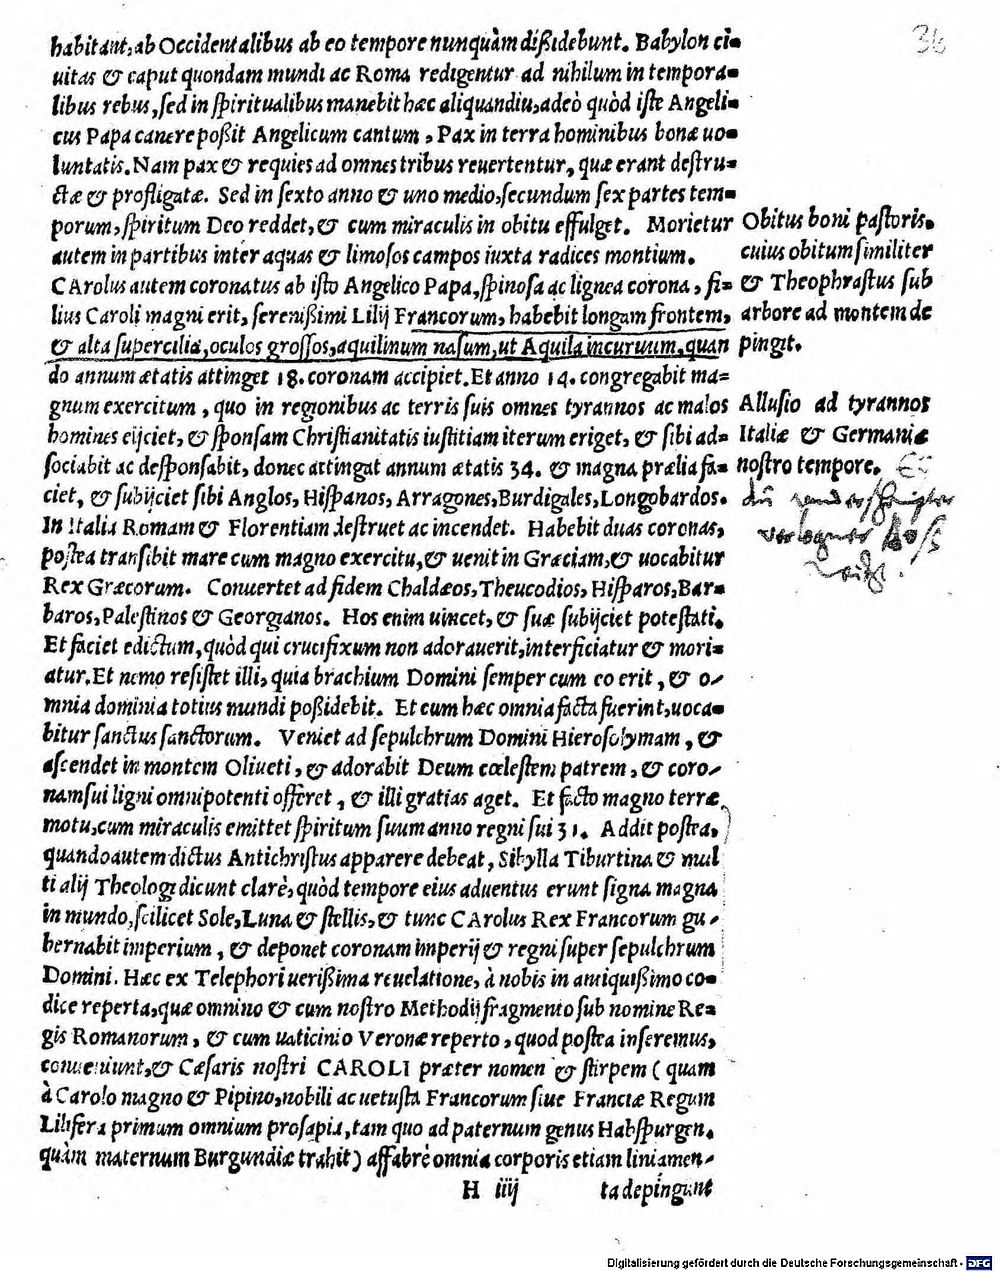 36
habitant, ab Occidentalibus ab eo tempore nunquàm dißidebunt. Babylon ci-
uitas & caput quondam mundi ac Roma redigentur ad nihilum in tempora-
libus rebus, sed in spiritualibus manebit hæc aliquandiu, adeò quòd iste Angeli-
cus Papa canere poßit Angelicum cantum, Pax in terra hominibus bonæ uo-
luntatis. Nam pax & requies ad omnes tribus reuertentur, quæ erant destru-
ctæ & profligatæ. Sed in sexto anno & uno medio, secundum sex partes tem-
porum, spiritum Deo reddet, & cum miraculis in obitu effulget. Morietur
autem in partibus inter aquas & limosos campos iuxta radices montium.
Obitus boni pastoris.
cuius obitum similiter
& Theophrastus sub
arbore ad montem de
pingit.
CArolus autem coronatus ab isto Angelico Papa, spinosa ac lignea corona, fi-
lius Caroli magni erit, serenißimi Lilij Francorum, habebit longam frontem,
& alta supercilia, oculos grossos, aquilinum nasum, ut Aquila incuruum, quan
do annum ætatis attinget 18. coronam accipiet. Et anno 14. congregabit ma-
gnum exercitum, quo in regionibus ac terris suis omnes tyrannos ac malos
homines eijciet, & sponsam Christianitatis iustitiam iterum eriget, & sibi ad-
sociabit ac desponsabit, donec attingat annum ætatis 34. & magna prælia fa-
ciet, & subijciet sibi Anglos, Hispanos, Arragones, Burdigales, Longobardos.
Allusio ad tyrannos
Italiæ & Germaniæ
nostro tempore.
In Italia Romam & Florentiam destruet ac incendet. Habebit duas coronas,
postea transibit mare cum magno exercitu, & uenit in Græciam, & uocabitur
Rex Græcorum. Conuertet ad fidem Chaldæos, Theucodios, Hisparos, Bar-
baros, Palestinos & Georgianos. Hos enim uincet, & suæ subijciet potestati.
Et faciet edictum, quòd qui crucifixum non adorauerit, interficiatur & mori-
atur. Et nemo resistet illi, quia brachium Domini semper cum eo erit, & o-
mnia dominia totius mundi poßidebit. Et cum hæc omnia facta fuerint, uoca-
bitur sanctus sanctorum. Veniet ad sepulchrum Domini Hierosolymam, &
ascendet in montem Oliueti, & adorabit Deum cœlestem patrem, & coro-
nam sui ligni omnipotenti offeret, & illi gratias aget. Et facto magno terræ
motu, cum miraculis emittet spiritum suum anno regni sui 31. Addit postea,
quando autem dictus Antichristus apparere debeat, Sibylla Tiburtina & mul
ti alij Theologi dicunt clarè, quòd tempore eius aduentus erunt signa magna
in mundo, scilicet Sole, Luna & stellis, & tunc CArolus Rex Francorum gu-
bernabit imperium, & deponet coronam imperij & regni super sepulchrum
Domini. Hæc ex Telephori uerißima reuelatione, à nobis in antiquißimo co-
dice reperta, quæ omnino & cum nostro Methodij fragmento sub nomine Re-
gis Romanorum, & cum uaticinio Veronæ reperto, quod postea inseremus,
conueniunt, & Cæsaris nostri CAROLI præter nomen & stirpem ( quam
à Carolo magno & Pipino, nobili ac uetusta Francorum siue Franciæ Regum
Lilifera primum omnium prosapia, tam quo ad paternum genus Habspurgen.
quàm maternum Burgundiæ trahit) affabrè omnia corporis etiam liniamen-
H iiij ta depingunt
Digitalisierung gefördert durch die Deutsche Forschungsgemeinschaft - DFG